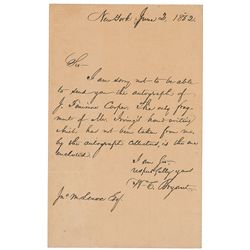 New York June 2, 1862.
Sir
I am sorry not to be able
to send you the autograph of
J. Fenimore Cooper. The only frag
ment of Mr. Irving's hand writing
which has not been taken from me
by the autograph collectors, is the one
enclosed.
I am Sir
respectfully yours
W. C. Bryant.
Esq.